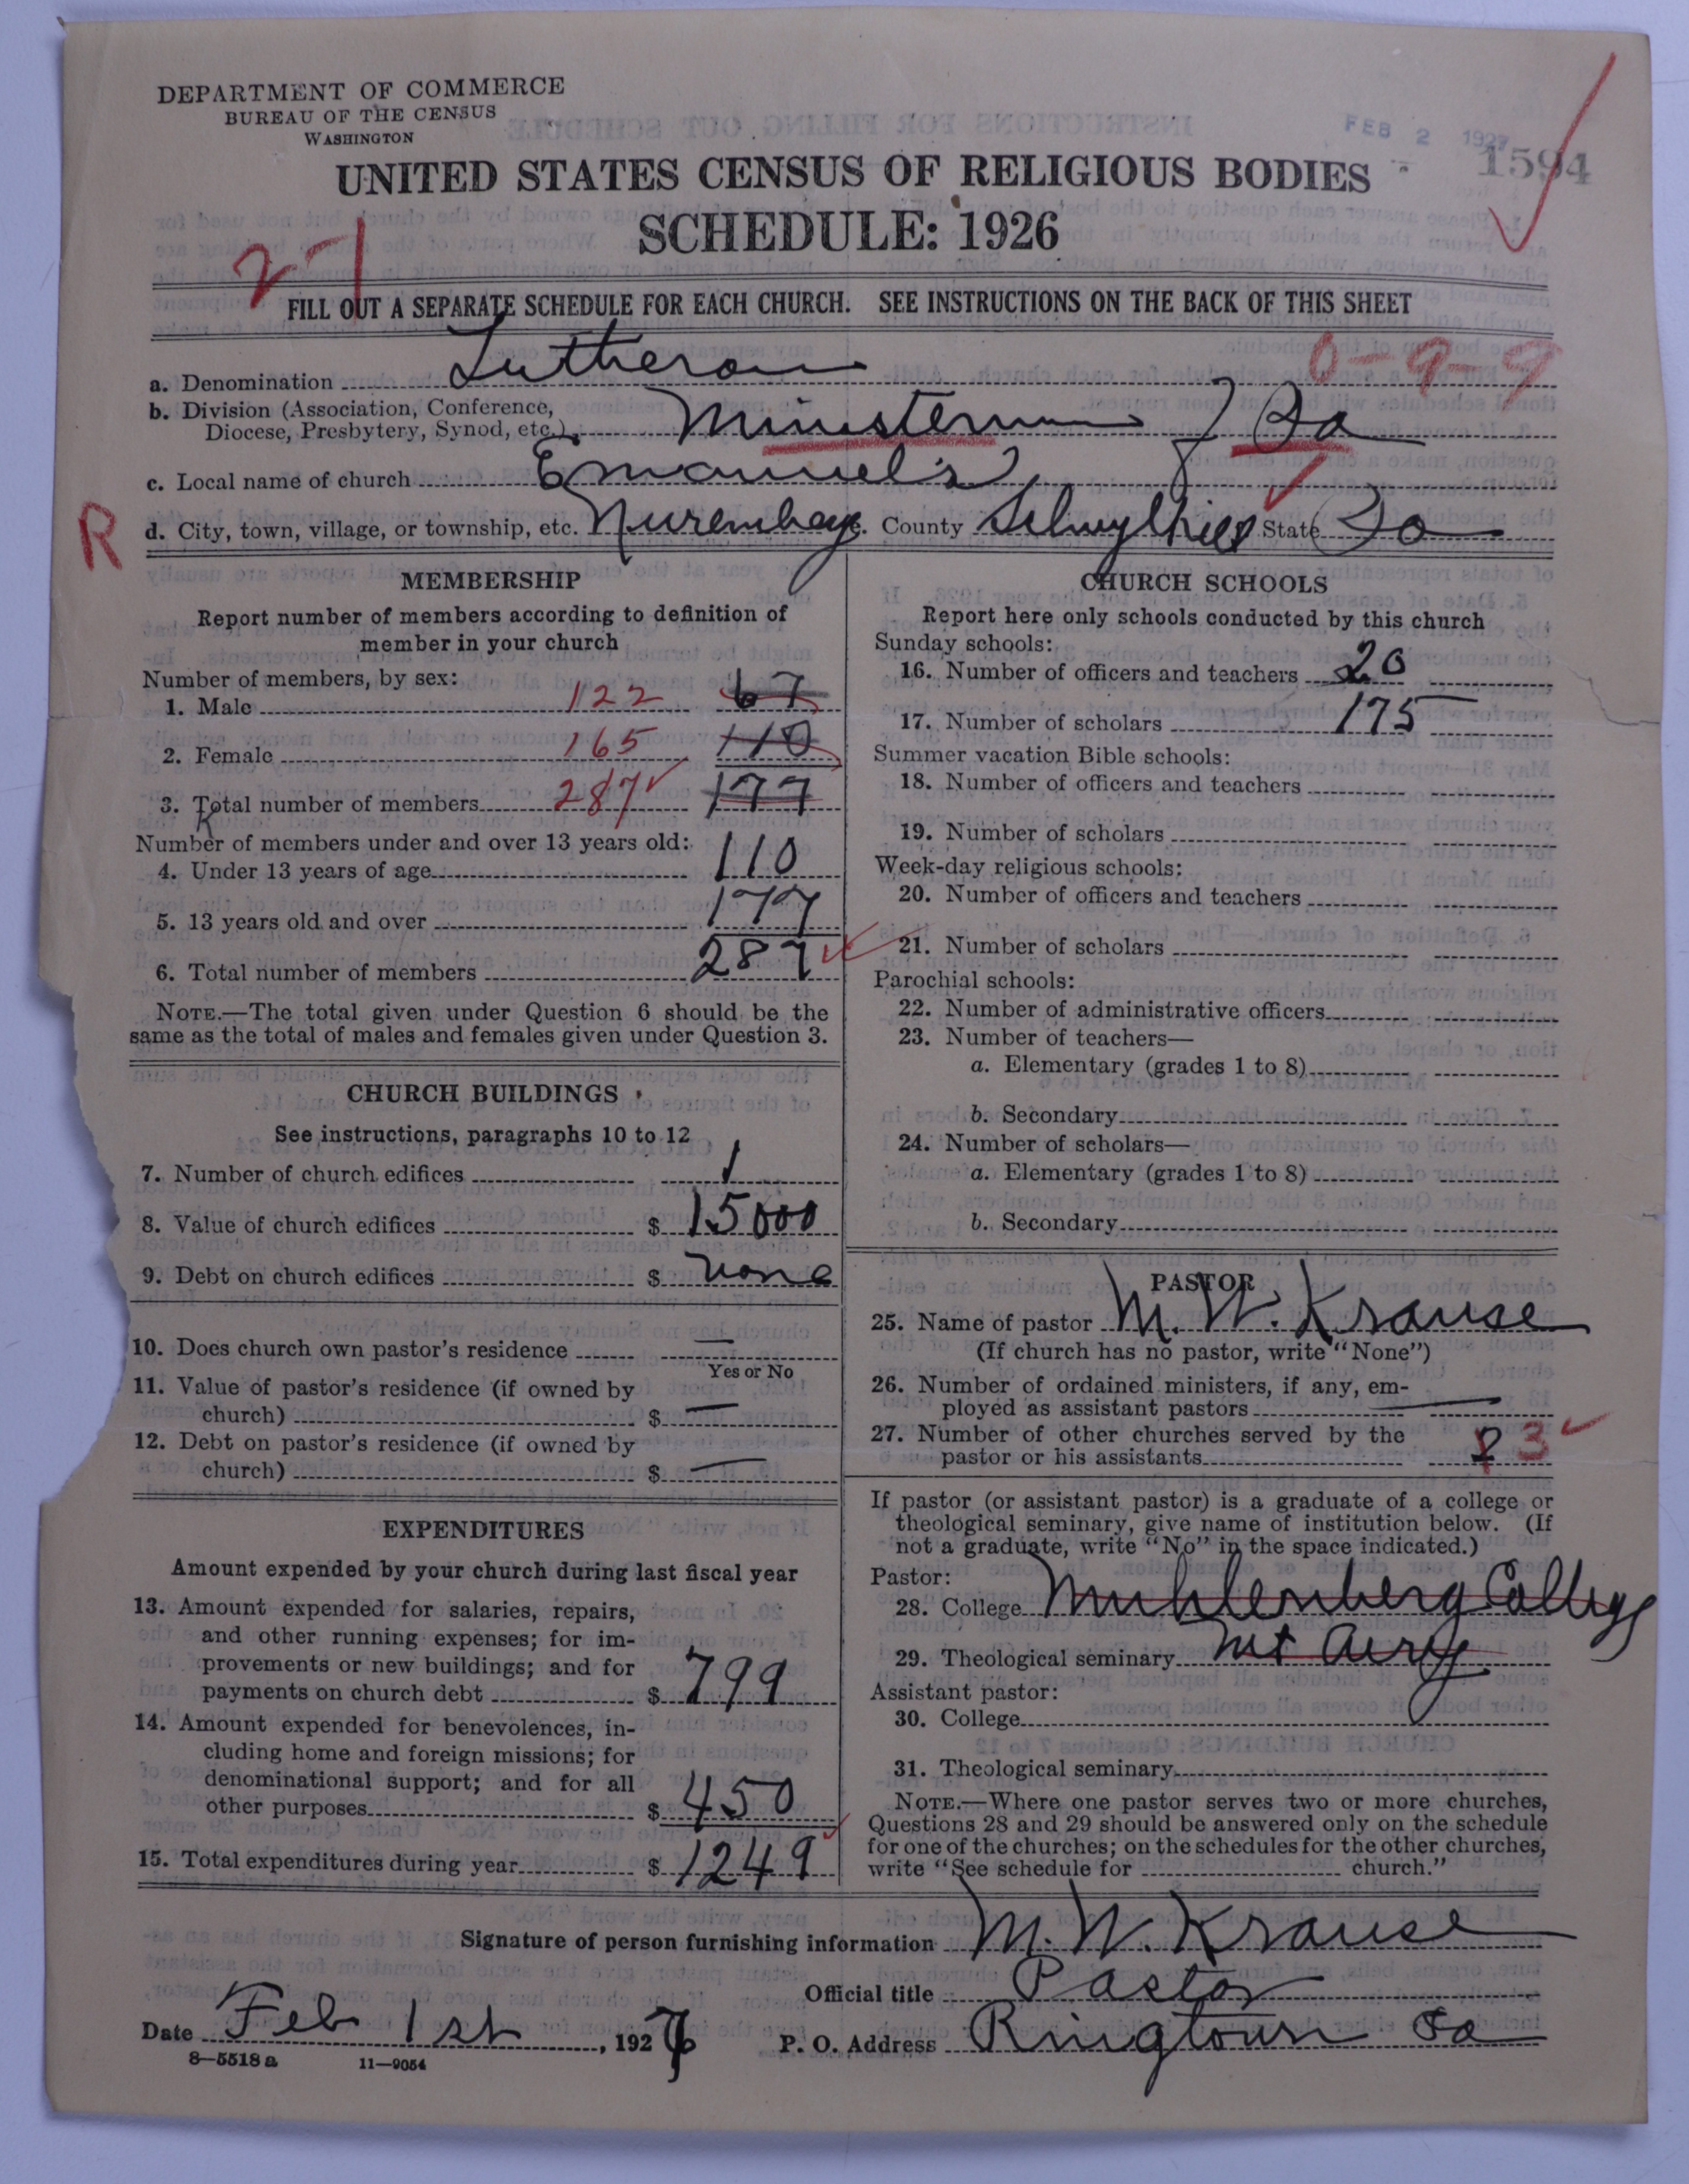 DEPARTMENT OF COMMERCE
BUREAU OF THE CENSUS
WASHINGTON
FEB 2 1927
1594
UNITED STATES CENSUS OF RELIGIOUS BODIES
SCHEDULE: 1926
2-1
FILL OUT A SEPARATE SCHEDULE FOR EACH CHURCH. SEE INSTRUCTIONS ON THE BACK OF THIS SHEET
a. Denomination Lutheran 0-9-9
b. Division (Association, Conference,
Diocese, Presbytery, Synod, etc.) Ministerium of Pa
c. Local name of church Emanuel's
R
d. City, town, village, or township, etc. Nuremberg. County Schuylkill State Pa
MEMBERSHIP
Report number of members according to definition of
member in your church
Number of members, by sex:
1. Male 122 67
2. Female 165 110
3. Total number of members 287 177
Number of members under and over 13 years old:
4. Under 13 years of age 110
5. 13 years old and over 177
6. Total number of members 287
NOTE.—The total given under Question 6 should be the
same as the total of males and females given under Question 3.
CHURCH BUILDINGS
See instructions, paragraphs 10 to 12
7. Number of church edifices 1
8. Value of church edifices $ 15000
9. Debt on church edifices $ none
10. Does church own pastor's residence —
Yes or No
11. Value of pastor's residence (if owned by
church) $ —
12. Debt on pastor's residence (if owned by
church) $ —
EXPENDITURES
Amount expended by your church during last fiscal year
13. Amount expended for salaries, repairs,
and other running expenses; for im-
provements or new buildings; and for
payments on church debt $ 799
14. Amount expended for benevolences, in-
cluding home and foreign missions; for
denominational support; and for all
other purposes $ 450
15. Total expenditures during year $ 1249
CHURCH SCHOOLS
Report here only schools conducted by this church
Sunday schools:
16. Number of officers and teachers 20
17. Number of scholars 175
Summer vacation Bible schools:
18. Number of officers and teachers
19. Number of scholars
Week-day religious schools:
20. Number of officers and teachers
21. Number of scholars
Parochial schools:
22. Number of administrative officers
23. Number of teachers—
a. Elementary (grades 1 to 8)
b. Secondary
24. Number of scholars—
a. Elementary (grades 1 to 8)
b. Secondary
PASTOR
25. Name of pastor M. W. Krause
(If church has no pastor, write "None")
26. Number of ordained ministers, if any, em-
ployed as assistant pastors —
27. Number of other churches served by the
pastor or his assistants 3
If pastor (or assistant pastor) is a graduate of a college or
theological seminary, give name of institution below. (If
not a graduate, write "No" in the space indicated.)
Pastor:
28. College Muhlenberg College
29. Theological seminary Mt Airy
Assistant pastor:
30. College
31. Theological seminary
NOTE.—Where one pastor serves two or more churches,
Questions 28 and 29 should be answered only on the schedule
for one of the churches; on the schedules for the other churches,
write "See schedule for church."
Signature of person furnishing information M. W. Krause
Official title Pastor
Date Feb 1st, 1927 P. O. Address Ringtown Pa
8—5518 a 11—9054